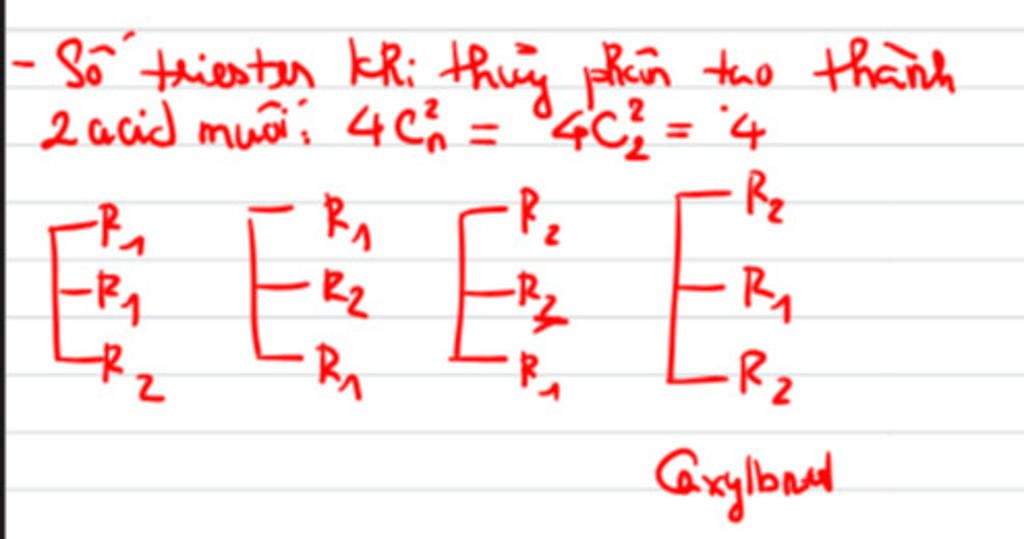 - Số triester khi thủy phân tạo thành
2 acid muối: 4C²ₙ = 4C²₂ = 4
R₁ R₁ R₂ R₂
R₁ R₂ R₂ R₁
R₂ R₁ R₁ R₂